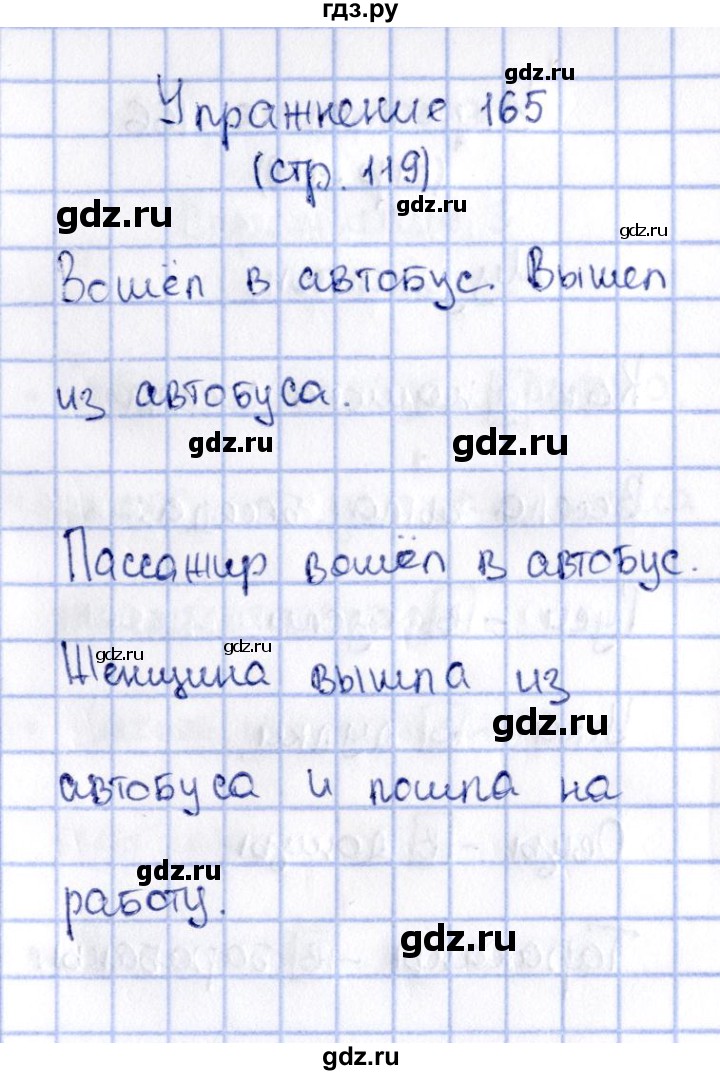 гдз.ру
gdz.ru
Упражнение 165
(стр. 119)
gdz.ru
gdz.ru
gdz.ru
Вошёл в автобус. Вышел
из автобуса.
gdz.ru
gdz.ru
Пассажир вошёл в автобус.
gdz.ru
gdz.ru
Женщина вышла из
gdz.ru
автобуса и пошла на
gdz.ru
работу.
gdz.ru
gdz.ru